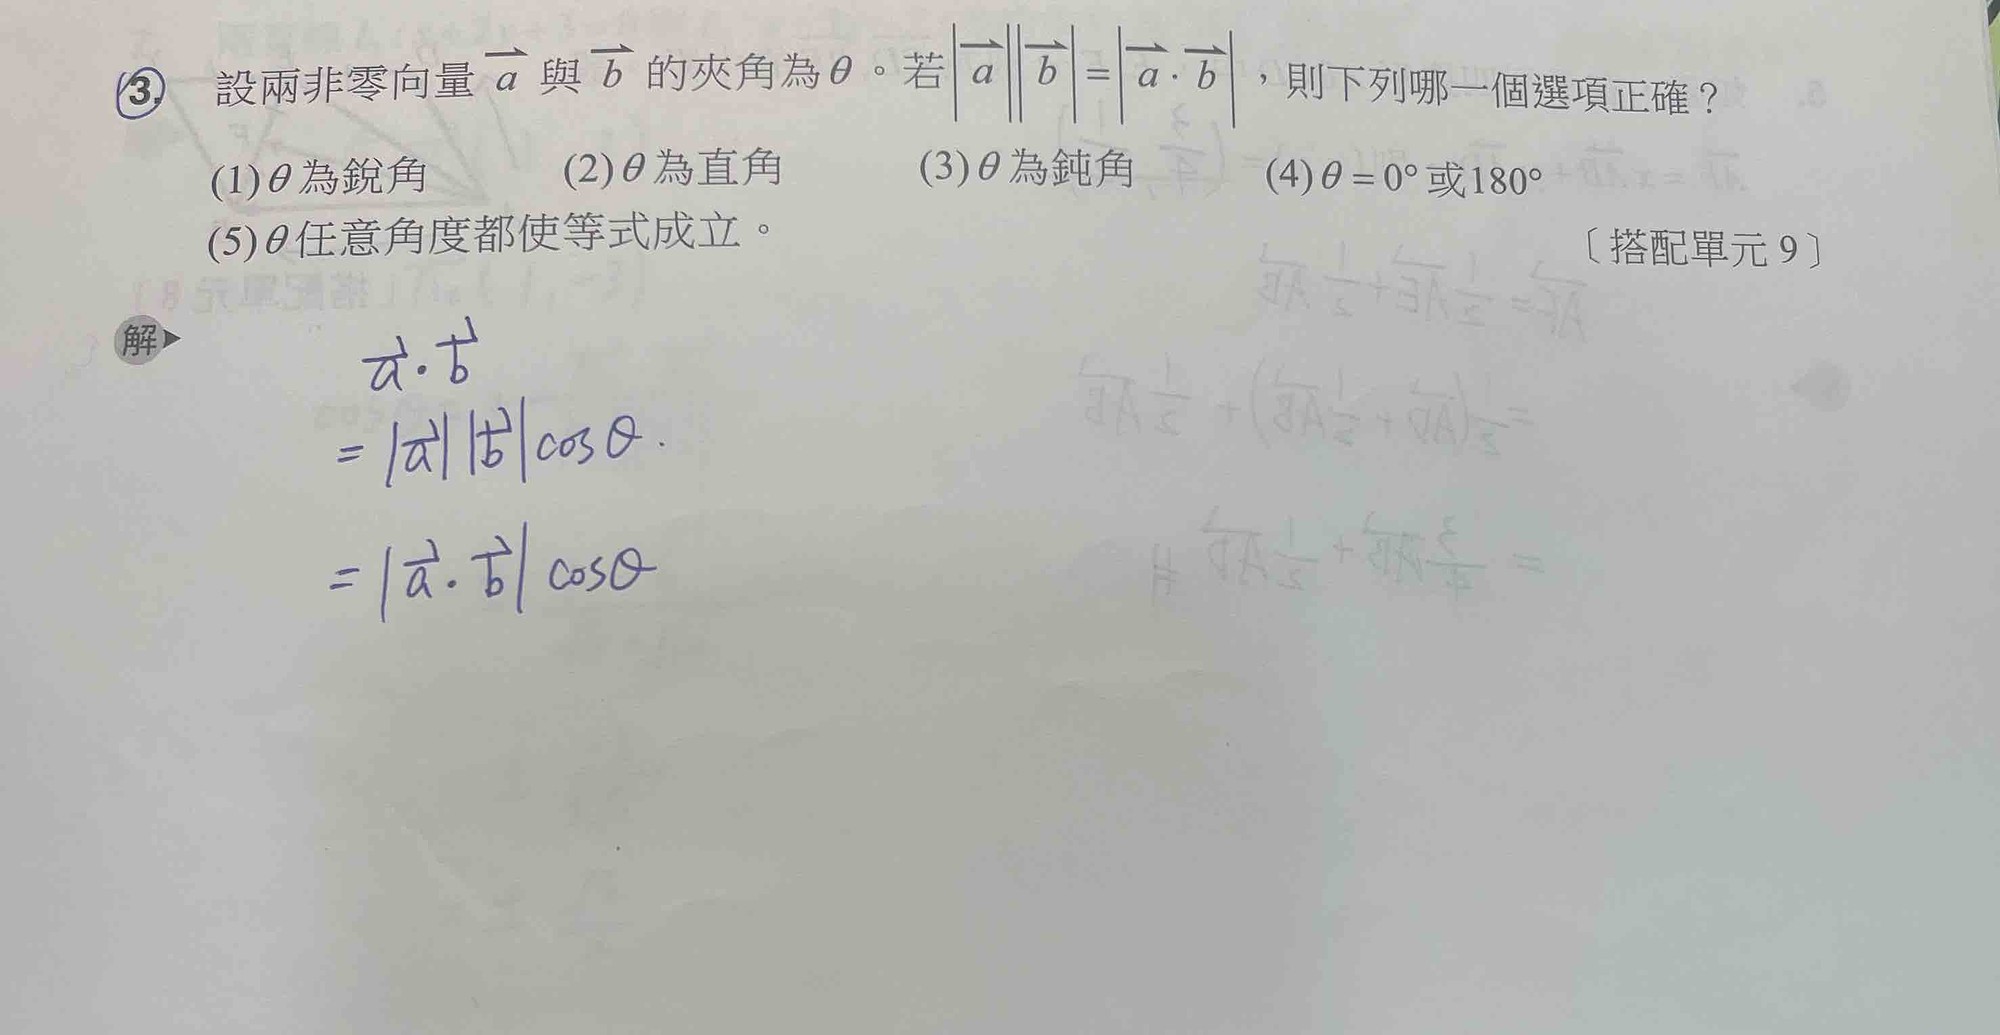 3. 設兩非零向量 a⃗ 與 b⃗ 的夾角為θ。若|a⃗||b⃗|=|a⃗·b⃗|，則下列哪一個選項正確？
(1)θ為銳角 (2)θ為直角 (3)θ為鈍角 (4)θ=0°或180°
(5)θ任意角度都使等式成立。 〔搭配單元9〕
解
a⃗·b⃗
=|a⃗||b⃗|cosθ.
=|a⃗·b⃗|cosθ